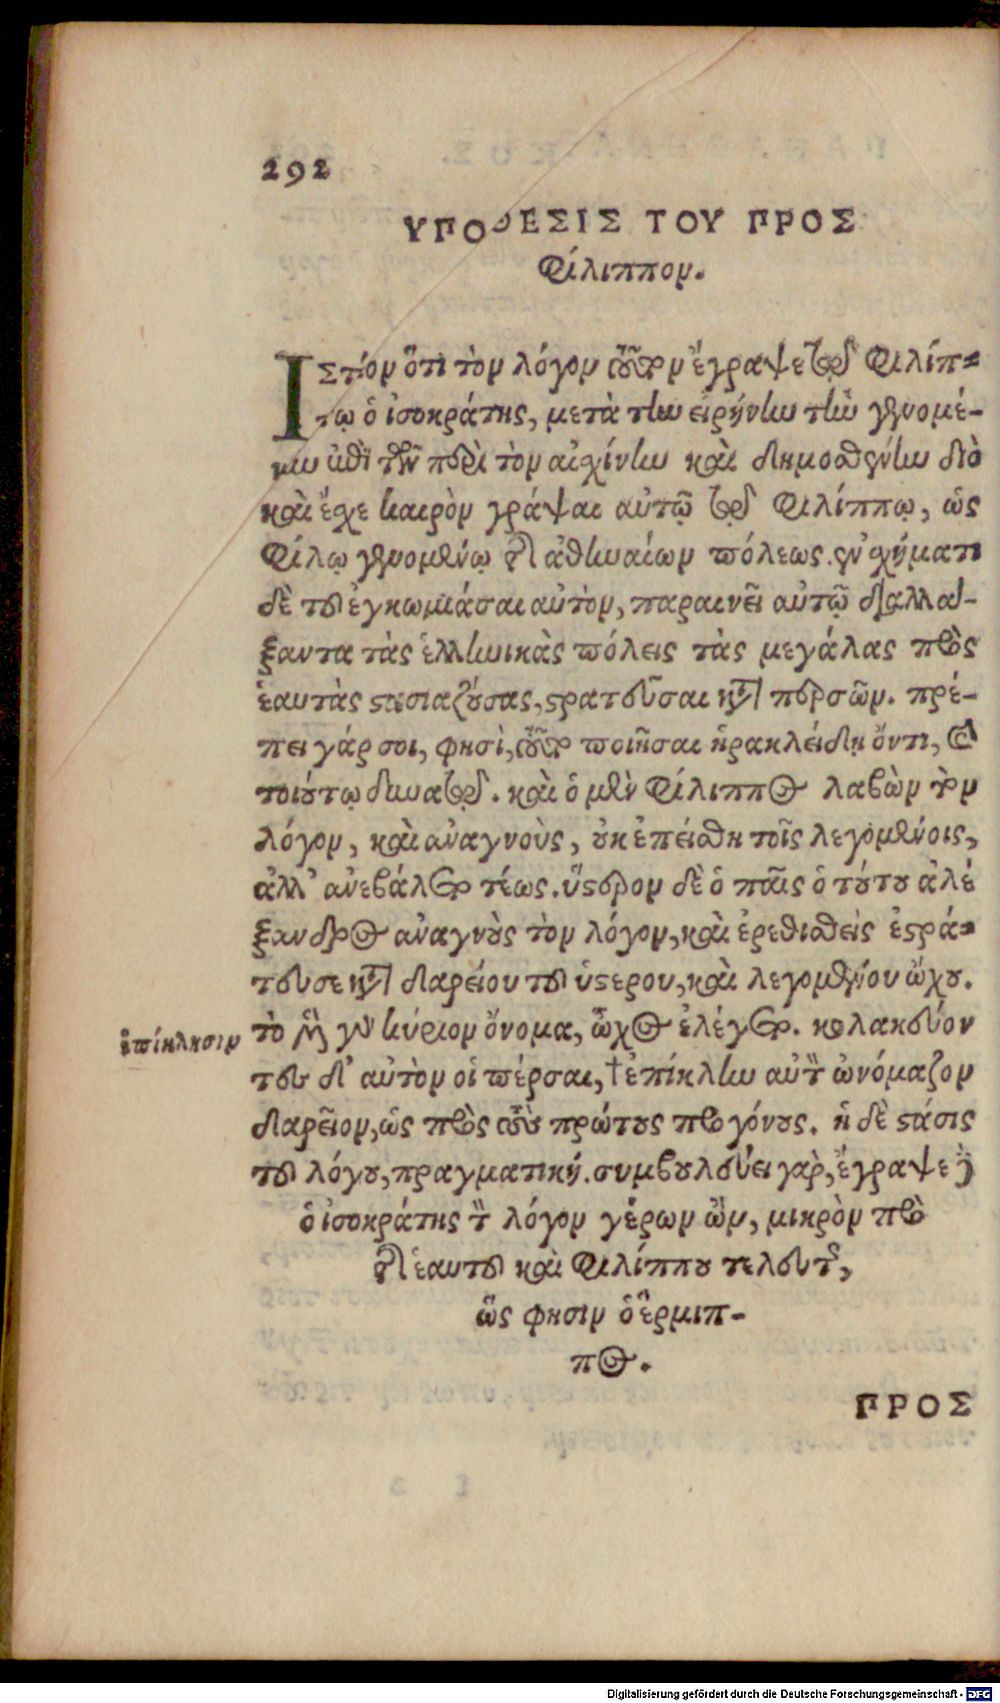 292
ΥΠΟΘΕΣΙΣ ΤΟΥ ΠΡΟΣ
Φίλιππον.
ΙΣτέον ὅτι τὸν λόγον τοῦτον ἔγραψε τῷ Φιλίπ-
πῳ ὁ ἰσοκράτης, μετὰ τὴν εἰρήνην τὴν γενομέ-
νην ὑπὸ τῶν περὶ τὸν αἰσχίνην καὶ δημοσθένην διὸ
καὶ ἔσχε καιρὸν γράψαι αὐτῷ τῷ Φιλίππῳ, ὡς
φίλῳ γενομένῳ τῆς ἀθηναίων πόλεως. ἐν σχήματι
δὲ τοῦ ἐγκωμιάσαι αὐτὸν, παραινεῖ αὐτῷ διαλλά-
ξαντα τὰς ἑλληνικὰς πόλεις τὰς μεγάλας πρὸς
ἑαυτὰς στασιαζούσας, στρατεῦσαι κατὰ περσῶν. πρέ-
πει γάρ σοι, φησὶ, τοῦτο ποιῆσαι ἡρακλείδῃ ὄντι, καὶ
τοιούτῳ δυνατῷ. καὶ ὁ μὲν Φίλιππος λαβὼν τὸν
λόγον, καὶ ἀναγνοὺς, οὐκ ἐπείσθη τοῖς λεγομένοις,
ἀλλ' ἀνεβάλετο τέως. ὕστερον δὲ ὁ παῖς ὁ τούτου ἀλέ
ξανδρος ἀναγνοὺς τὸν λόγον, καὶ ἐρεθισθεὶς ἐστρά-
τευσε κατὰ δαρείου τοῦ ὑστέρου, καὶ λεγομένου ὤχου.
ἐπίκλησιν
τὸ μὲν γὰρ κύριον ὄνομα, ὦχος ἐλέγετο. κολακεύον
τες δ' αὐτὸν οἱ πέρσαι, †ἐπίκλην αὐτὸν ὠνόμαζον
δαρεῖον, ὡς πρὸς τοὺς πρώτους προγόνους. ἡ δὲ στάσις
τοῦ λόγου, πραγματική. συμβουλεύει γὰρ, ἔγραψε δὲ
ὁ ἰσοκράτης τὸν λόγον γέρων ὢν, μικρὸν πρὸ
τῆς ἑαυτοῦ καὶ Φιλίππου τελευτῆς,
ὥς φησιν ὁ ἕρμιπ-
πος.
ΠΡΟΣ
Digitalisierung gefördert durch die Deutsche Forschungsgemeinschaft - DFG